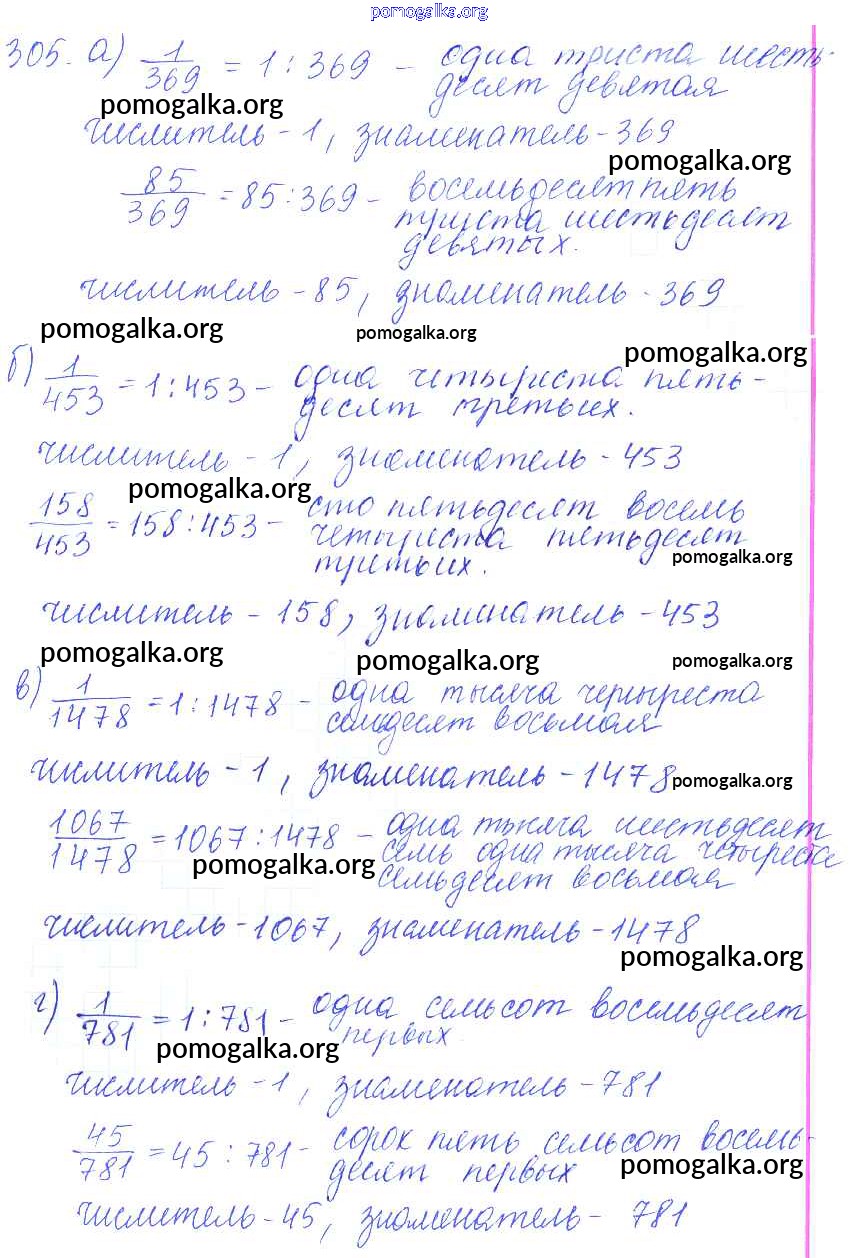 pomogalka.org
305. а) 1/369 = 1 : 369 - одна триста шесть-
десят девятая
pomogalka.org
числитель - 1, знаменатель - 369
pomogalka.org
85/369 = 85 : 369 - восемьдесят пять
триста шестьдесят
девятых.
числитель - 85, знаменатель - 369
pomogalka.org pomogalka.org
pomogalka.org
б) 1/453 = 1 : 453 - одна четыриста пять-
десят третьих.
числитель - 1, знаменатель - 453
pomogalka.org
158/453 = 158 : 453 - сто пятьдесят восемь
четыриста пятьдесят
третьих.
pomogalka.org
числитель - 158, знаменатель - 453
pomogalka.org pomogalka.org pomogalka.org
в) 1/1478 = 1 : 1478 - одна тысяча четыреста
семьдесят восьмая
числитель - 1, знаменатель - 1478
pomogalka.org
1067/1478 = 1067 : 1478 - одна тысяча шестьдесят
семь одна тысяча четыреста
семьдесят восьмая
pomogalka.org
числитель - 1067, знаменатель - 1478
pomogalka.org
г) 1/781 = 1 : 781 - одна семьсот восемьдесят
первых
pomogalka.org
числитель - 1, знаменатель - 781
45/781 = 45 : 781 - сорок пять семьсот восемь-
десят первых
pomogalka.org
числитель - 45, знаменатель - 781